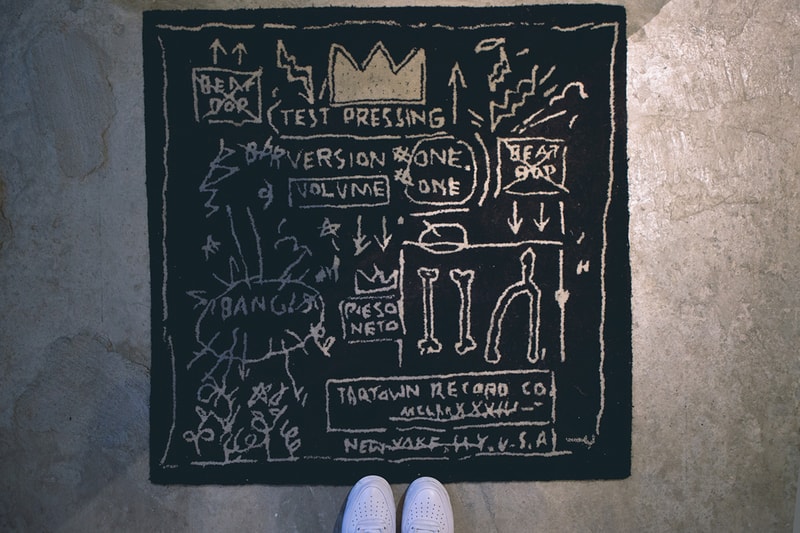 BEAT
BOP
TEST PRESSING
VERSION
ONE.
ONE
VOLUME
BEAT
BOP
BANG!
PESO
NETO
TARTOWN RECORD CO.
NEW YORK N.Y. U.S.A